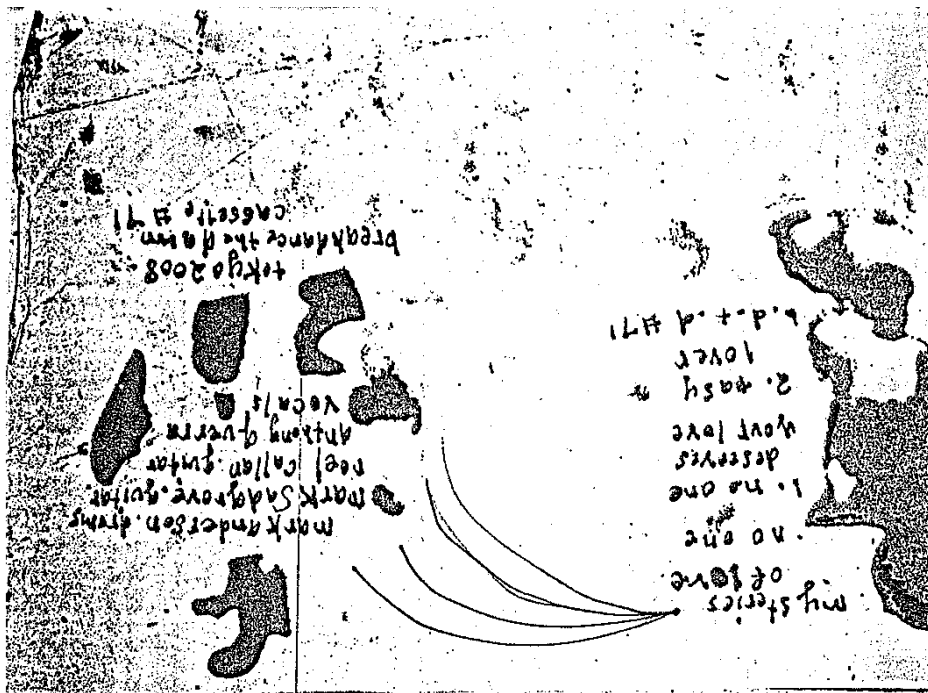 mysteries
of love
no one
1. no one
deserves
your love
2. easy
lover
b.d.t.d #71
mark anderson.drums
mark sadgrove.guitar
noel callan.guitar
antony guerra
vocals
tokyo 2008
breakdance the dawn
cassette #71